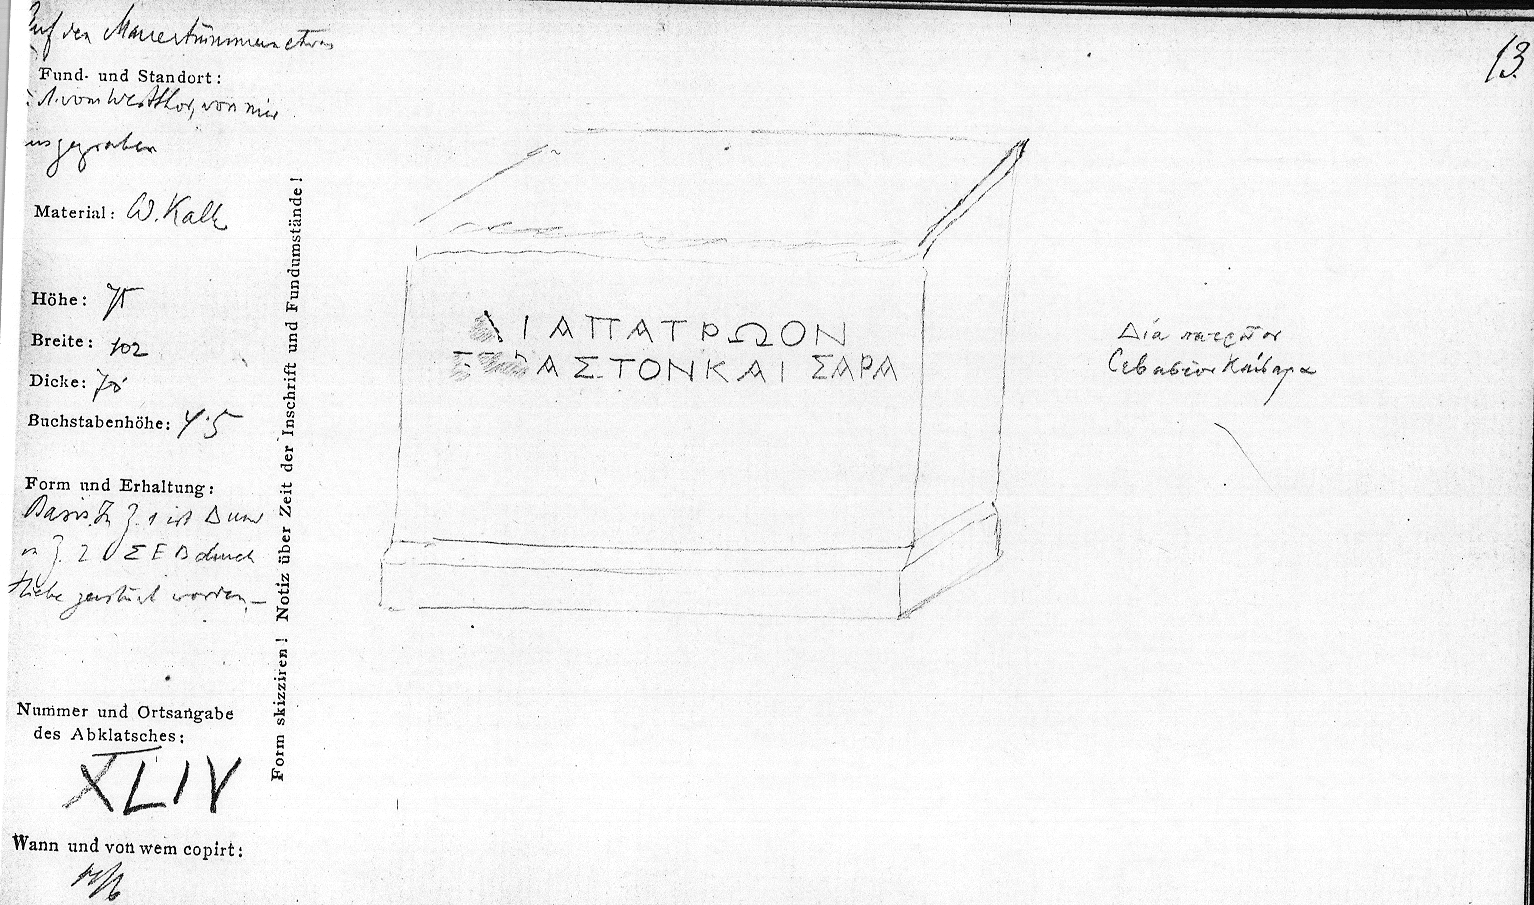 Auf den Mauertrümmern etwas
Fund- und Standort:
N. vom Westthor, von mir
ausgegraben
Material: W. Kalk
Höhe: 75
Breite: 102
Dicke: 70
Buchstabenhöhe: 4·5
Form und Erhaltung:
Basis. In Z. 1 ist Δ und
in Z. 2 ΣΕΒ durch
Hiebe zerstört worden. —
Nummer und Ortsangabe
des Abklatsches:
XLIV
Wann und von wem copirt:
Form skizziren! Notiz über Zeit der Inschrift und Fundumstände!
ΔΙΑΠΑΤΡΩΟΝ
ΣΕΒΑΣΤΟΝΚΑΙΣΑΡΑ
Δία πατρῷον
Σεβαστὸν Καίσαρα
13.